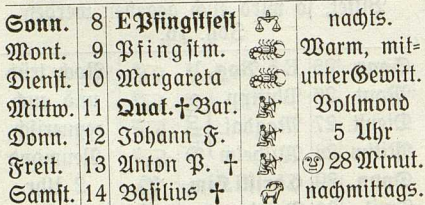 Sonn. 8 E Pfingstfest nachts.
Mont. 9 Pfingstm. Warm, mit=
Dienst. 10 Margareta unter Gewitt.
Mittw. 11 Quat. † Bar. Vollmond
Donn. 12 Johann F. 5 Uhr
Freit. 13 Anton P. † 28 Minut.
Samst. 14 Basilius † nachmittags.